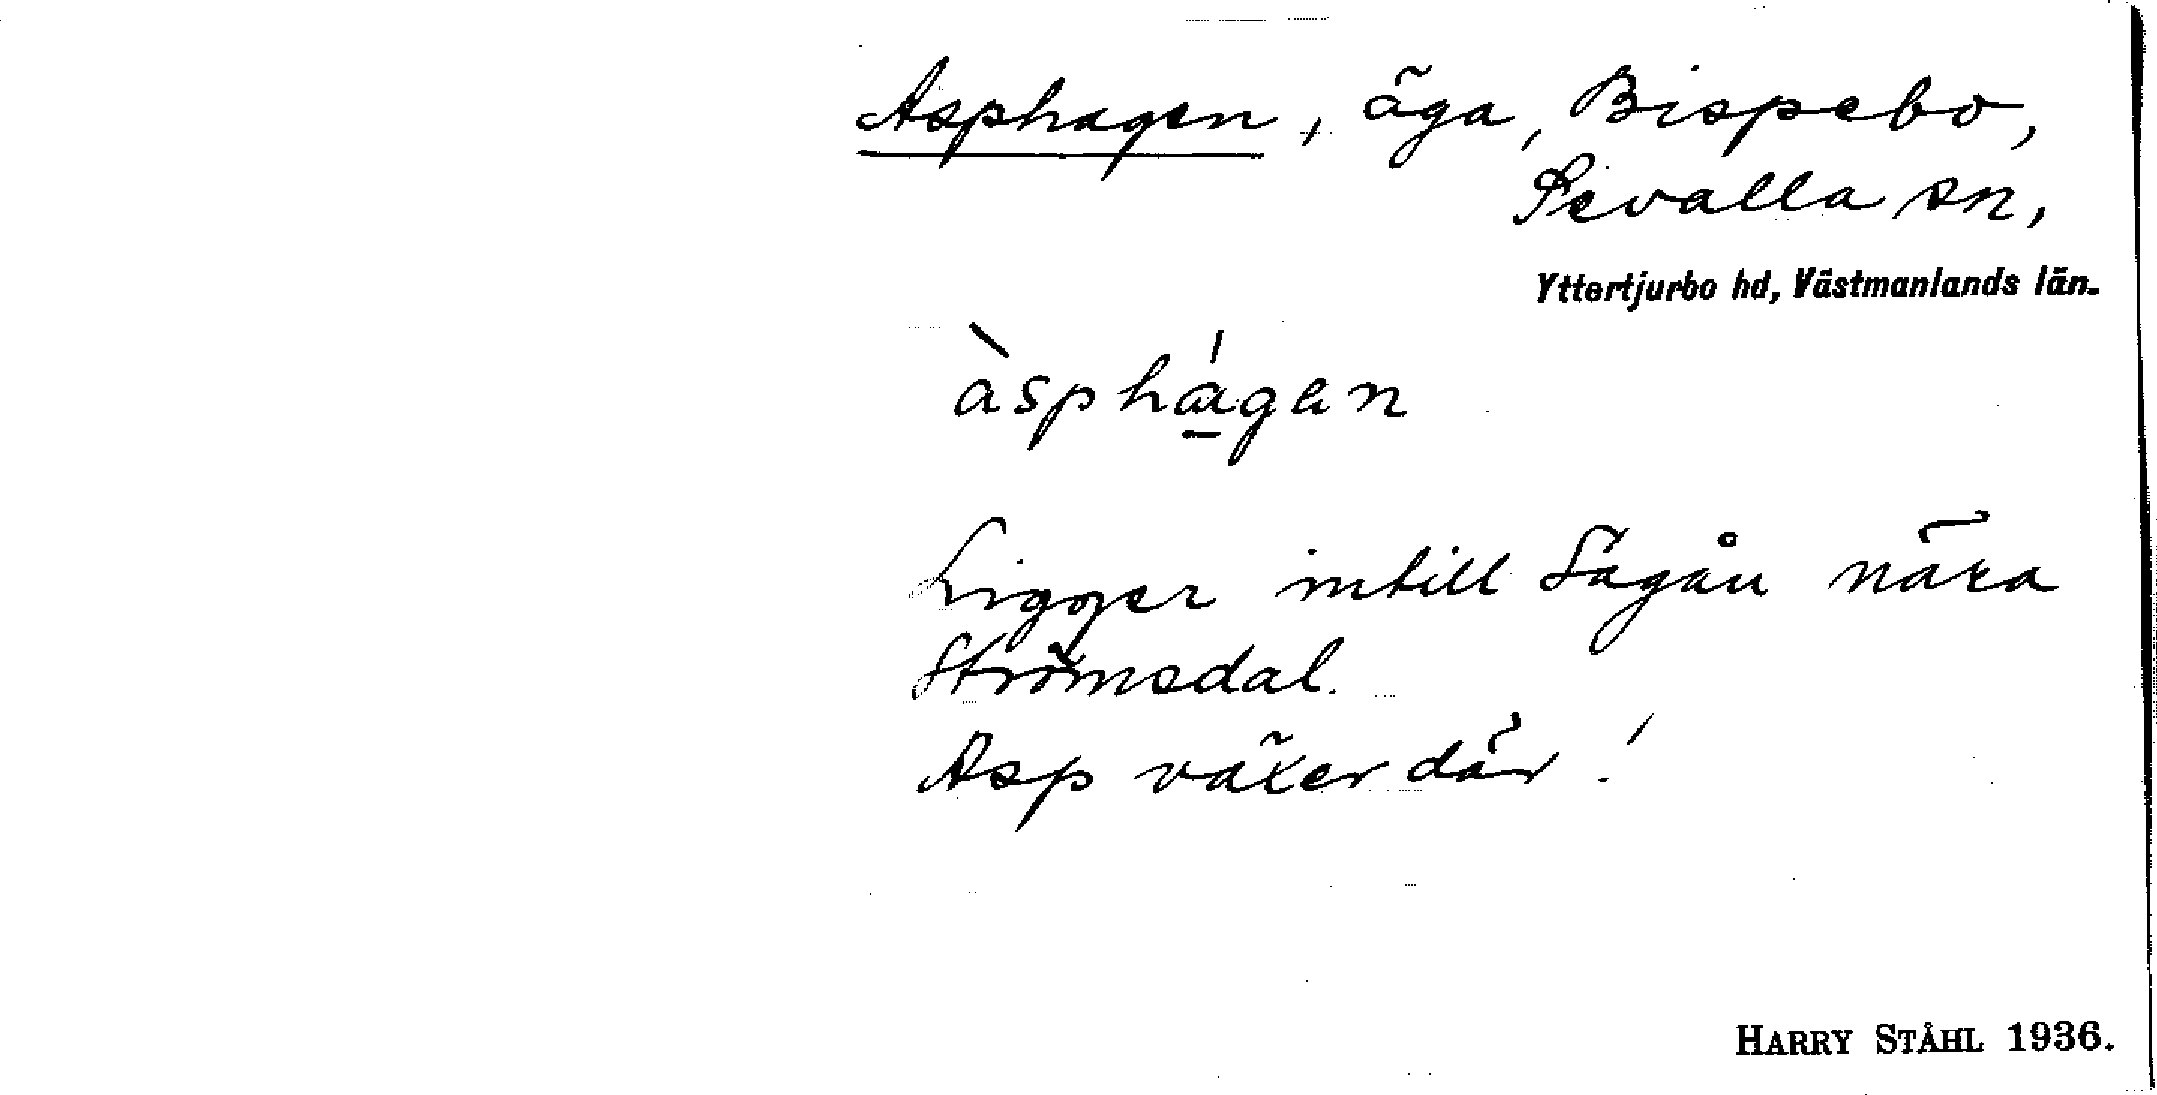 Asphagen, äga, Bispebo,
Sevalla sn,
Yttertjurbo hd, Västmanlands län.
àsphágen
Ligger intill Sagån nära
Strömsdal.
Asp växer där!
HARRY STÅHL 1936.